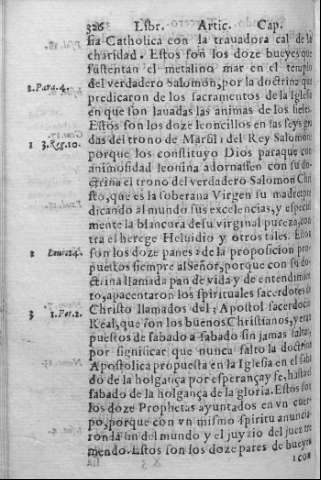 326 Libr. Artic. Cap.
sia Catholica con la trauadora cal de la
charidad. Estos son los doze bueyes que
sustentan el metalino mar en el templo
2. Para. 4. del verdadero Salomon, por la doctrina que
predicaron de los sacramentos de la Iglesia
en que son lauadas las animas de los fieles.
Estos son los doze leoncillos en las seys gra
1 3. Reg. 10. das del trono de Marfil del Rey Salomon
porque los constituyo Dios paraque con
animosidad leonina adornassen con su do-
ctrina el trono del verdadero Salomon Chri
sto, que es la soberana Virgen su madre pre
dicando al mundo sus excelencias, y especial
mente la blancura de su virginal pureza, con
tra el herege Heluidio y otros tales. Estos
2 Leui. 24. son los doze panes de la proposicion pro-
puestos siempre al Señor, porque con su do-
ctrina llamada pan de vida y de entendimien
to, apacentaron los spirituales sacerdotes de
3 1. Pet. 2. Christo llamados del Apostol sacerdocio
Real, que son los buenos Christianos, y eran
puestos de sabado a sabado sin jamas faltar,
por significar que nunca falto la doctrina
Apostolica propuesta en la Iglesia en el saba
do de la holgança por esperança y fe, hasta el
sabado de la holgança de la gloria. Estos son
los doze Prophetas ayuntados en vn cuer-
po, porque con vn mismo spiritu anuncia-
ron la fin del mundo y el juyzio del juez tre
mendo. Estos son los doze pares de bueyes